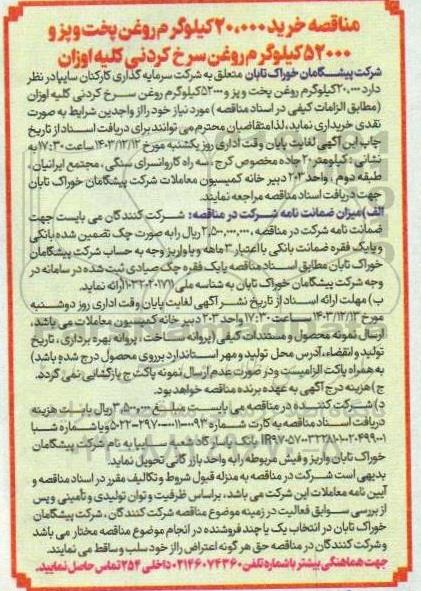 مناقصه خرید ۲۰،۰۰۰کیلوگرم روغن پخت و پز و
۵۲۰۰۰ کیلوگرم روغن سرخ کردنی کلیه اوزان
شرکت پیشگامان خوراک تابان متعلق به شرکت سرمایه گذاری کارکنان سایپا در نظر
دارد ۲۰،۰۰۰کیلوگرم روغن پخت و پز و ۵۲۰۰۰کیلوگرم روغن سرخ کردنی کلیه اوزان
(مطابق الزامات کیفی در اسناد مناقصه) مورد نیاز خود را از واجدین شرایط به صورت
نقدی خریداری نماید، لذا متقاضیان محترم می توانند برای دریافت اسناد از تاریخ
چاپ این آگهی لغایت پایان وقت اداری روز یکشنبه مورخ ۱۴۰۳/۱۲/۱۲ ساعت ۱۷:۳۰ به
نشانی: کیلومتر ۲۰ جاده مخصوص کرج، سه راه کاروانسرای سنگی، مجتمع ایرانیان،
طبقه دوم، واحد ۲۰۳ دبیر خانه کمیسیون معاملات شرکت پیشگامان خوراک تابان
جهت دریافت اسناد مناقصه مراجعه نمایند.
الف)میزان ضمانت نامه شرکت در مناقصه: شرکت کنندگان می بایست جهت
ضمانت نامه شرکت در مناقصه، ۲،۵۰۰،۰۰۰،۰۰۰ ریال را به صورت چک تضمین شده بانکی
و یا یک فقره ضمانت بانکی با اعتبار ۳ ماهه و یا واریز وجه به حساب شرکت پیشگامان
خوراک تابان مطابق اسناد مناقصه یا یک فقره چک صیادی ثبت شده در سامانه در
وجه شرکت پیشگامان خوراک تابان به شناسه ملی ۱۰۳۲۰۲۰۱۷۱۱ ارائه نماید.
ب) مهلت ارائه اسناد از تاریخ نشر آگهی لغایت پایان وقت اداری روز دوشنبه
مورخ ۱۴۰۳/۱۲/۱۳ ساعت ۱۷:۳۰ واحد ۲۰۳ دبیر خانه کمیسیون معاملات می باشد،
ارسال نمونه محصول و مستندات کیفی (پروانه ساخت، پروانه بهره برداری، تاریخ
تولید و انقضاء، آدرس محل تولید و مهر استاندارد بر روی محصول درج شده باشد)
به همراه پاکت الزامیست و در صورت عدم ارسال نمونه پاکت ج بازگشایی نمی گردد.
ج) هزینه درج آگهی به عهده برنده مناقصه خواهد بود.
د) شرکت کننده در مناقصه می بایست مبلغ ۳،۵۰۰،۰۰۰ ریال بابت هزینه
دریافت اسناد مناقصه به کارت شماره ۵۰۲۲-۲۹۷۰-۰۰۱۱-۰۰۹۳ و یا شماره شبا
بانک پاسارگاد شعبه سایپا به نام شرکت پیشگامان
خوراک تابان واریز و فیش مربوطه را به واحد بازرگانی تحویل نماید.
بدیهی است شرکت در مناقصه به منزله قبول شروط و تکالیف مقرر در اسناد مناقصه و
آیین نامه معاملات این شرکت می باشد، براساس ظرفیت و توان تولیدی و تأمینی و پس
از بررسی سوابق فعالیت در زمینه موضوع مناقصه شرکت کنندگان، شرکت پیشگامان
خوراک تابان در انتخاب یک یا چند فروشنده در انجام موضوع مناقصه مختار می باشد
و شرکت کنندگان در مناقصه حق هر گونه اعتراض را از خود سلب و ساقط می نمایند.
جهت هماهنگی بیشتر با شماره تلفن ۰۲۱۴۶۰۷۴۳۶۰ داخلی ۲۵۴ تماس حاصل نمایید.